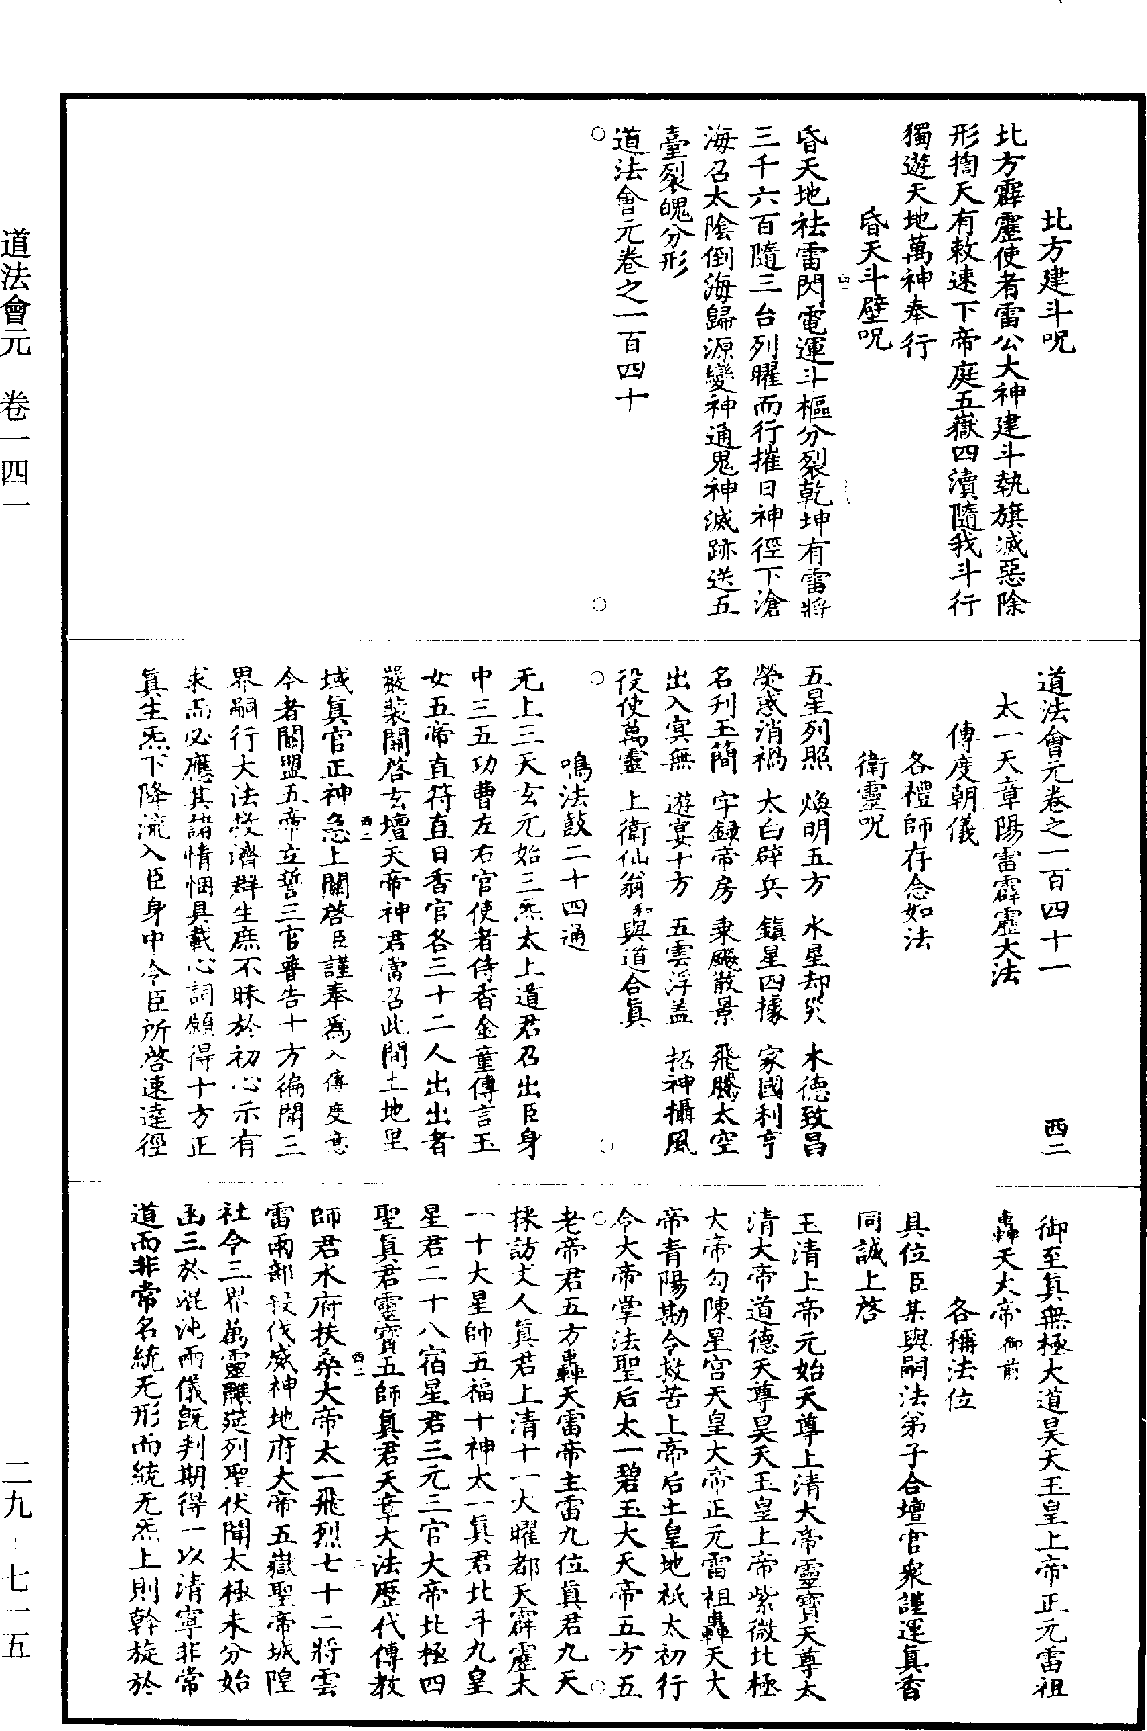 道法會元　卷一四一
二九·七一五
北方建斗呪
北方霹靂使者雷公大神建斗執旗滅惡除
形搊天有敕速下帝庭五嶽四瀆隨我斗行
獨遊天地萬神奉行
昏天斗壁呪
昏天地祛雷閃電運斗樞分裂乾坤有雷將
三千六百隨三台列曜而行摧日神徑下滄
海召太陰倒海歸源變神通鬼神滅跡送五
臺裂魄分形
道法會元卷之一百四十
道法會元卷之一百四十一　西二
太一天章陽雷霹靂大法
傳度朝儀
各禮師存念如法
衛靈呪
五星列照　煥明五方　水星却災　木德致昌
熒惑消禍　太白辟兵　鎮星四據　家國利亨
名刊玉簡　字錄帝房　乘飈散景　飛騰太空
出入冥無　遊宴十方　五雲浮蓋　招神攝風
役使萬靈　上衛仙翁和與道合眞
鳴法鼓二十四通
无上三天玄元始三炁太上道君召出臣身
中三五功曹左右官使者侍香金童傳言玉
女五帝直符直日香官各三十二人出出者
嚴裝開啓玄壇天帝神君當召此間土地里
域眞官正神急上關啓臣謹奉爲入傳度意
今者關盟五帝立誓三官普告十方徧聞三
界嗣行大法救濟群生庶不昧於初心示有
求而必應其諸情悃具載心詞願得十方正
眞生炁下降流入臣身中令臣所啓速達徑
御至眞無極大道昊天玉皇上帝正元雷祖
轟天大帝御前
各稱法位
具位臣某與嗣法弟子合壇官衆謹運眞香
同誠上啓
玉清上帝元始天尊上清大帝靈寶天尊太
清大帝道德天尊昊天玉皇上帝紫微北極
大帝勾陳星宮天皇大帝正元雷祖轟天大
帝青陽勘令救苦上帝后土皇地祇太初行
令大帝掌法聖后太一碧玉大天帝五方五
老帝君五方轟天雷帝主雷九位眞君九天
採訪丈人眞君上清十一大曜都天霹靂大
一十大星帥五福十神太一眞君北斗九皇
星君二十八宿星君三元三官大帝北極四
聖眞君靈寶五師眞君天章大法歷代傳教
師君水府扶桑大帝太一飛烈七十二將雲
雷雨部殺伐威神地府大帝五嶽聖帝城隍
社令三界萬靈醮筵列聖伏聞太極未分始
函三於混沌兩儀旣判期得一以清寧非常
道而非常名統无形而統无炁上則斡旋於